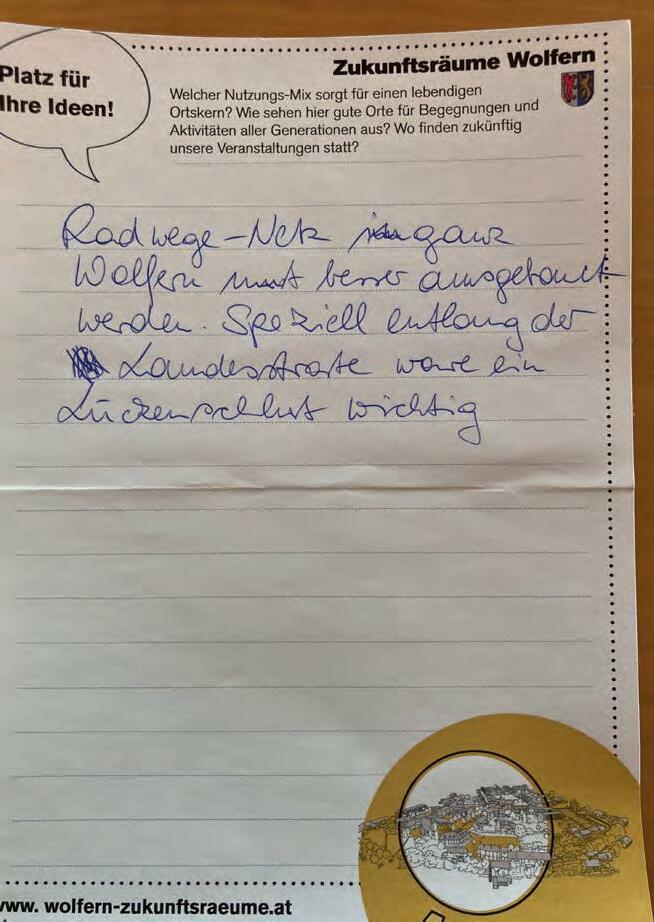 Platz für
Ihre Ideen!
Zukunftsräume Wolfern
Welcher Nutzungs-Mix sorgt für einen lebendigen
Ortskern? Wie sehen hier gute Orte für Begegnungen und
Aktivitäten aller Generationen aus? Wo finden zukünftig
unsere Veranstaltungen statt?
Radwege-Netz in ganz
Wolfern muß besser ausgebaut
werden. Speziell entlang der
Landesstraße wäre ein
Lückenschluß wichtig
www. wolfern-zukunftsraeume.at